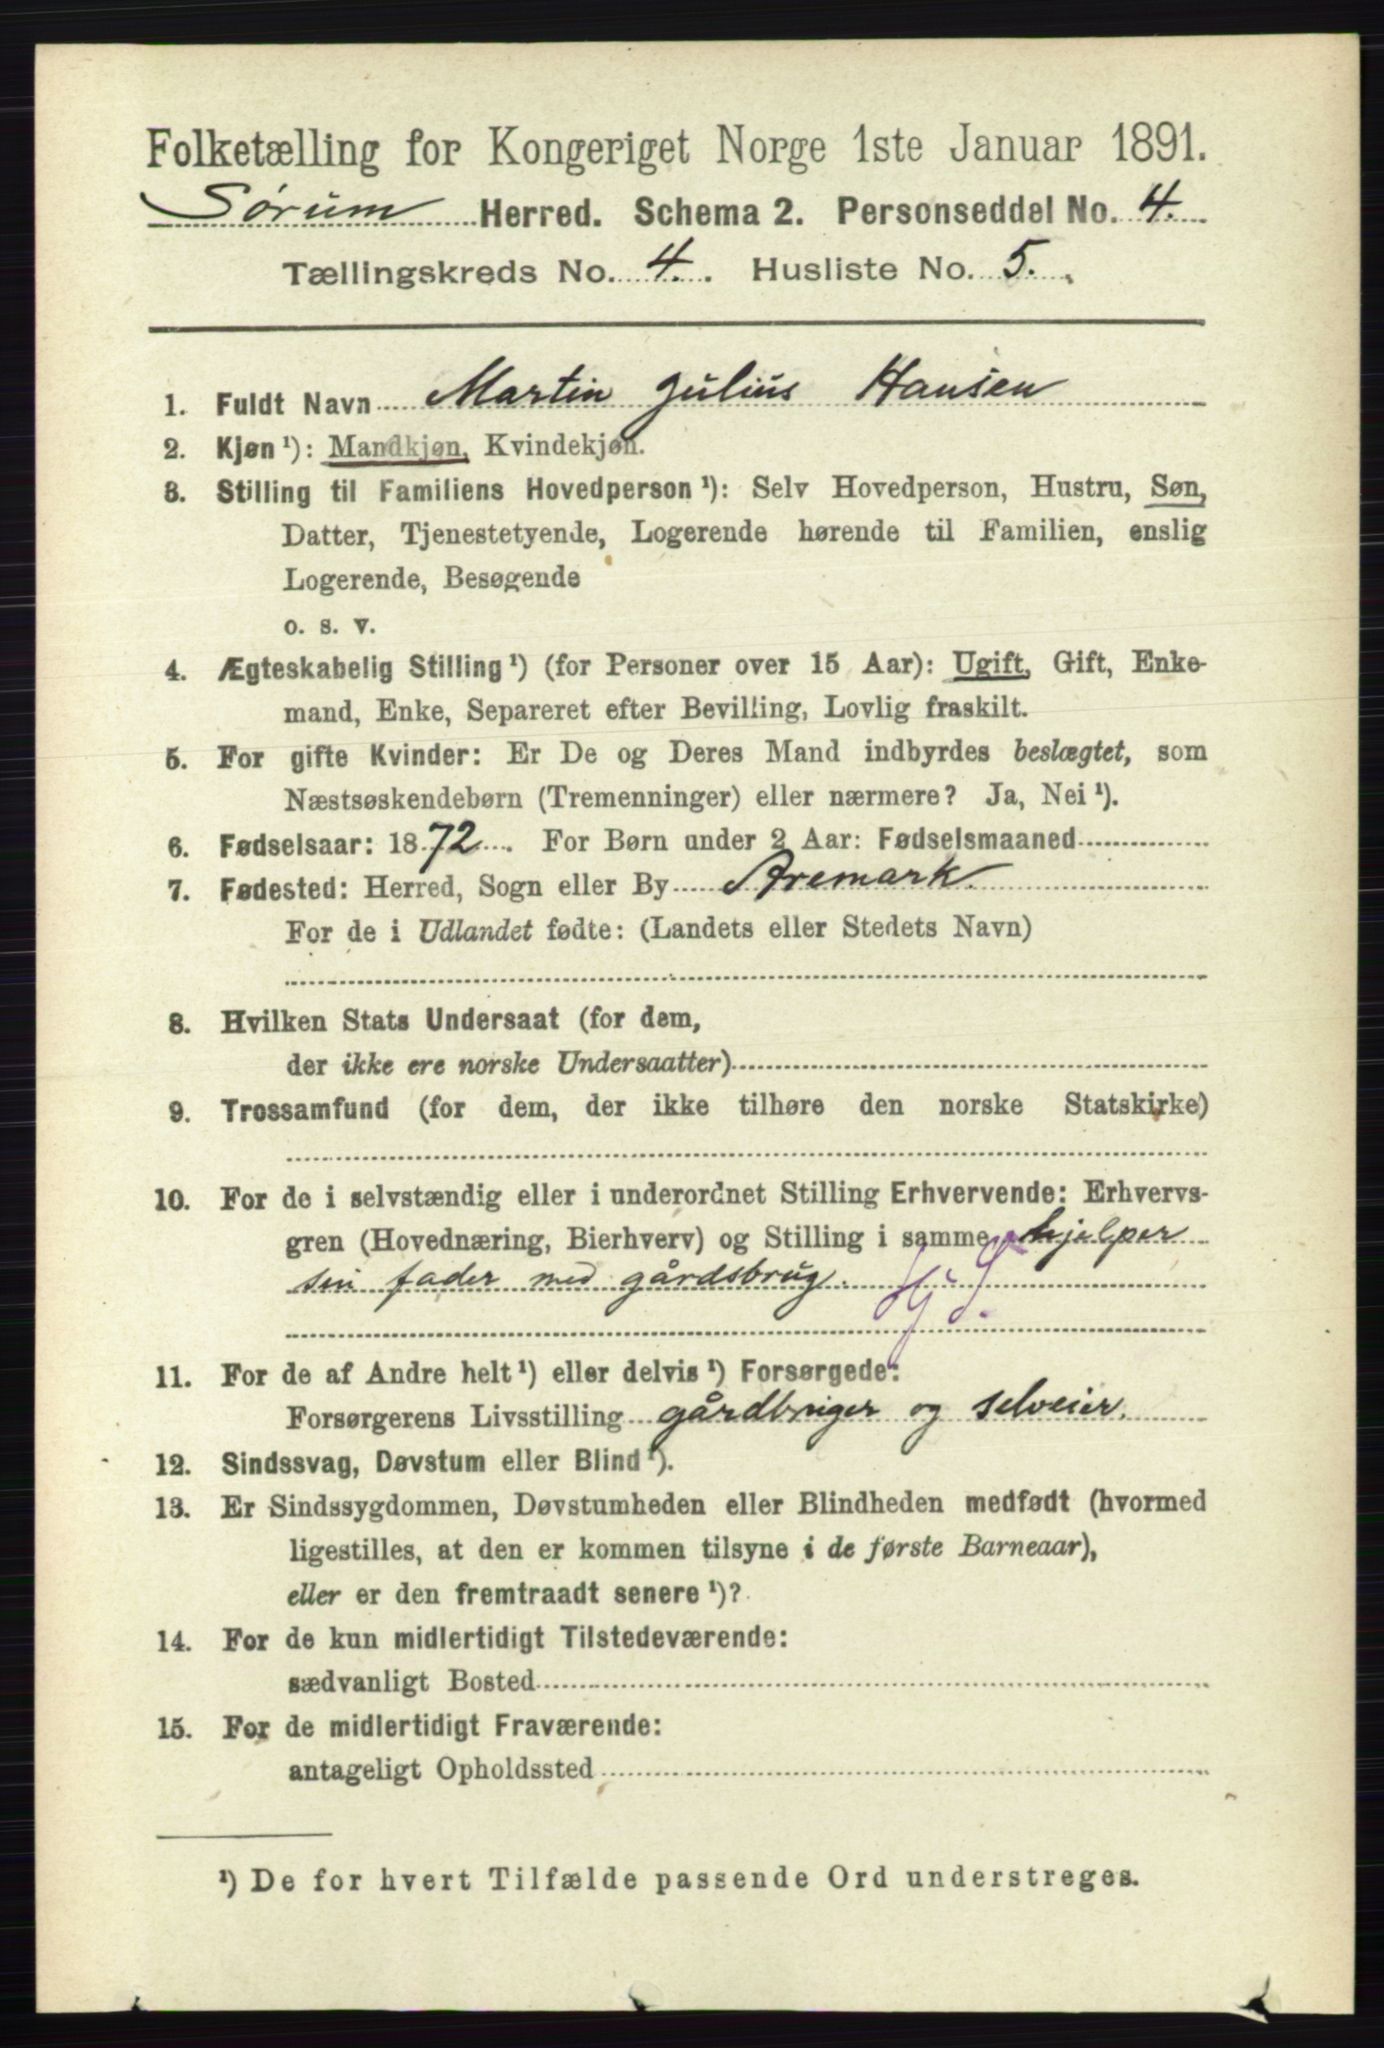 Folketælling for Kongeriget Norge 1ste Januar 1891.
Sørum Herred. Schema 2. Personseddel No. 4.
Tællingskreds No. 4. Husliste No. 5.
1. Fuldt Navn Martin Julius Hansen
2. Kjøn ¹): Mandkjøn, Kvindekjøn.
3. Stilling til Familiens Hovedperson ¹): Selv Hovedperson, Hustru, Søn,
Datter, Tjenestetyende, Logerende hørende til Familien, enslig
Logerende, Besøgende
o. s. v.
4. Ægteskabelig Stilling ¹) (for Personer over 15 Aar): Ugift, Gift, Enke-
mand, Enke, Separeret efter Bevilling, Lovlig fraskilt.
5. For gifte Kvinder: Er De og Deres Mand indbyrdes beslægtet, som
Næstsøskendebørn (Tremenninger) eller nærmere? Ja, Nei ¹).
6. Fødselsaar: 1872. For Børn under 2 Aar: Fødselsmaaned
7. Fødested: Herred, Sogn eller By Aremark.
For de i Udlandet fødte: (Landets eller Stedets Navn)
8. Hvilken Stats Undersaat (for dem,
der ikke ere norske Undersaatter)
9. Trossamfund (for dem, der ikke tilhøre den norske Statskirke)
10. For de i selvstændig eller i underordnet Stilling Erhvervende: Erhvervs-
gren (Hovednæring, Bierhverv) og Stilling i samme hjelper
sin fader med gårdsbrug.
11. For de af Andre helt ¹) eller delvis ¹) Forsørgede:
Forsørgerens Livsstilling gårdbruger og selveier.
12. Sindssvag, Døvstum eller Blind ¹).
13. Er Sindssygdommen, Døvstumheden eller Blindheden medfødt (hvormed
ligestilles, at den er kommen tilsyne i de første Barneaar),
eller er den fremtraadt senere ¹)?
14. For de kun midlertidigt Tilstedeværende:
sædvanligt Bosted
15. For de midlertidigt Fraværende:
antageligt Opholdssted
¹) De for hvert Tilfælde passende Ord understreges.